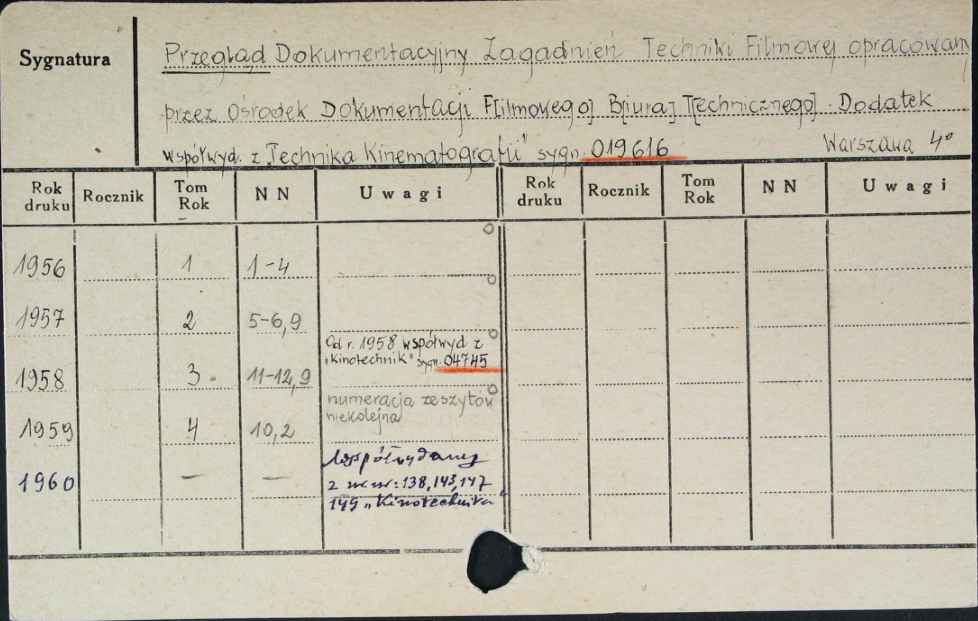 Sygnatura
Przegląd Dokumentacyjny Zagadnień Techniki Filmowej opracowan
przez Ośrodek Dokumentacji F[ilmowego] B[iura] T[echnicznego]. Dodatek
współwyd. z „Technika Kinematografii" sygn. 019616 Warszawa 4°
Rok druku Rocznik Tom Rok NN Uwagi Rok druku Rocznik Tom Rok NN Uwagi
1956 1 1-4
1957 2 5-6,9
Od r. 1958 współwyd z
„Kinotechnik" sygn. 04745
1958 3 11-12,9
numeracja zeszytów
niekolejna
1959 4 10,2
Współwydany
1960 — — z nr nr: 138, 143, 147
149 „Kinotechnika